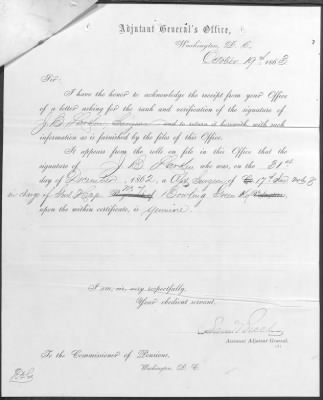 Adjutant General's Office,
Washington, D. C.,
October 19th 1863
Sir:
I have the honor to acknowledge the receipt from your Office
of a letter asking for the rank and verification of the signature of
J. B. Surgeon and to return it herewith with such
information as is furnished by the files of this Office.
It appears from the rolls on file in this Office that the
signature of J. B. who was, in the 31st
day of December, 1862, a Asst. Surgeon of 17th Ind Vols
in charge of Hosp No. 7 Bowling Green Ky
upon the within certificate, is genuine.
I am, sir, very respectfully,
Your obedient servant,
Assistant Adjutant General.
To the Commissioner of Pensions,
Washington, D. C.